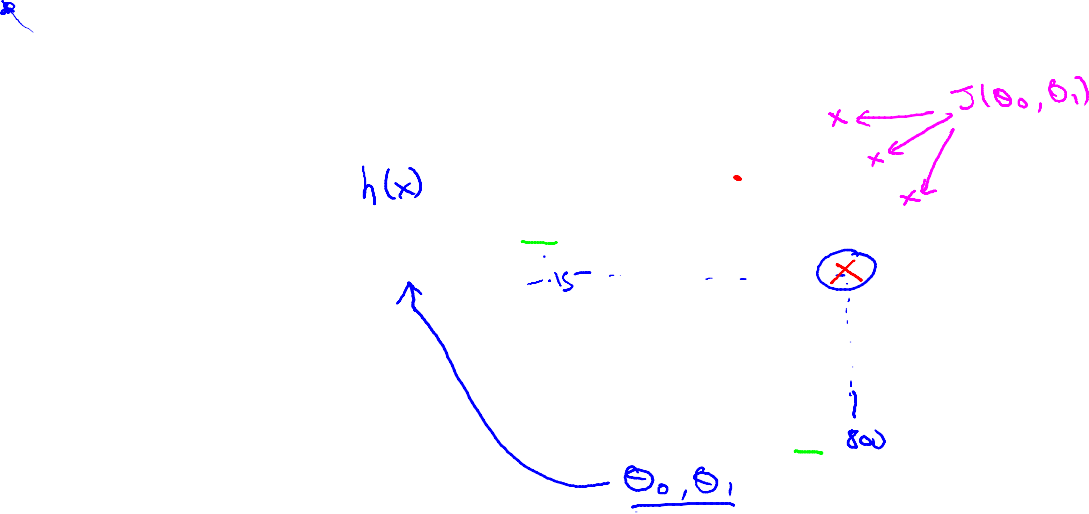 J(θ₀, θ₁)
x
x
h(x)
x
-.15
x
800
θ₀, θ₁